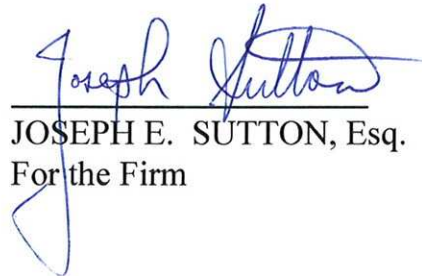 Joseph Sutton
JOSEPH E. SUTTON, Esq.
For the Firm